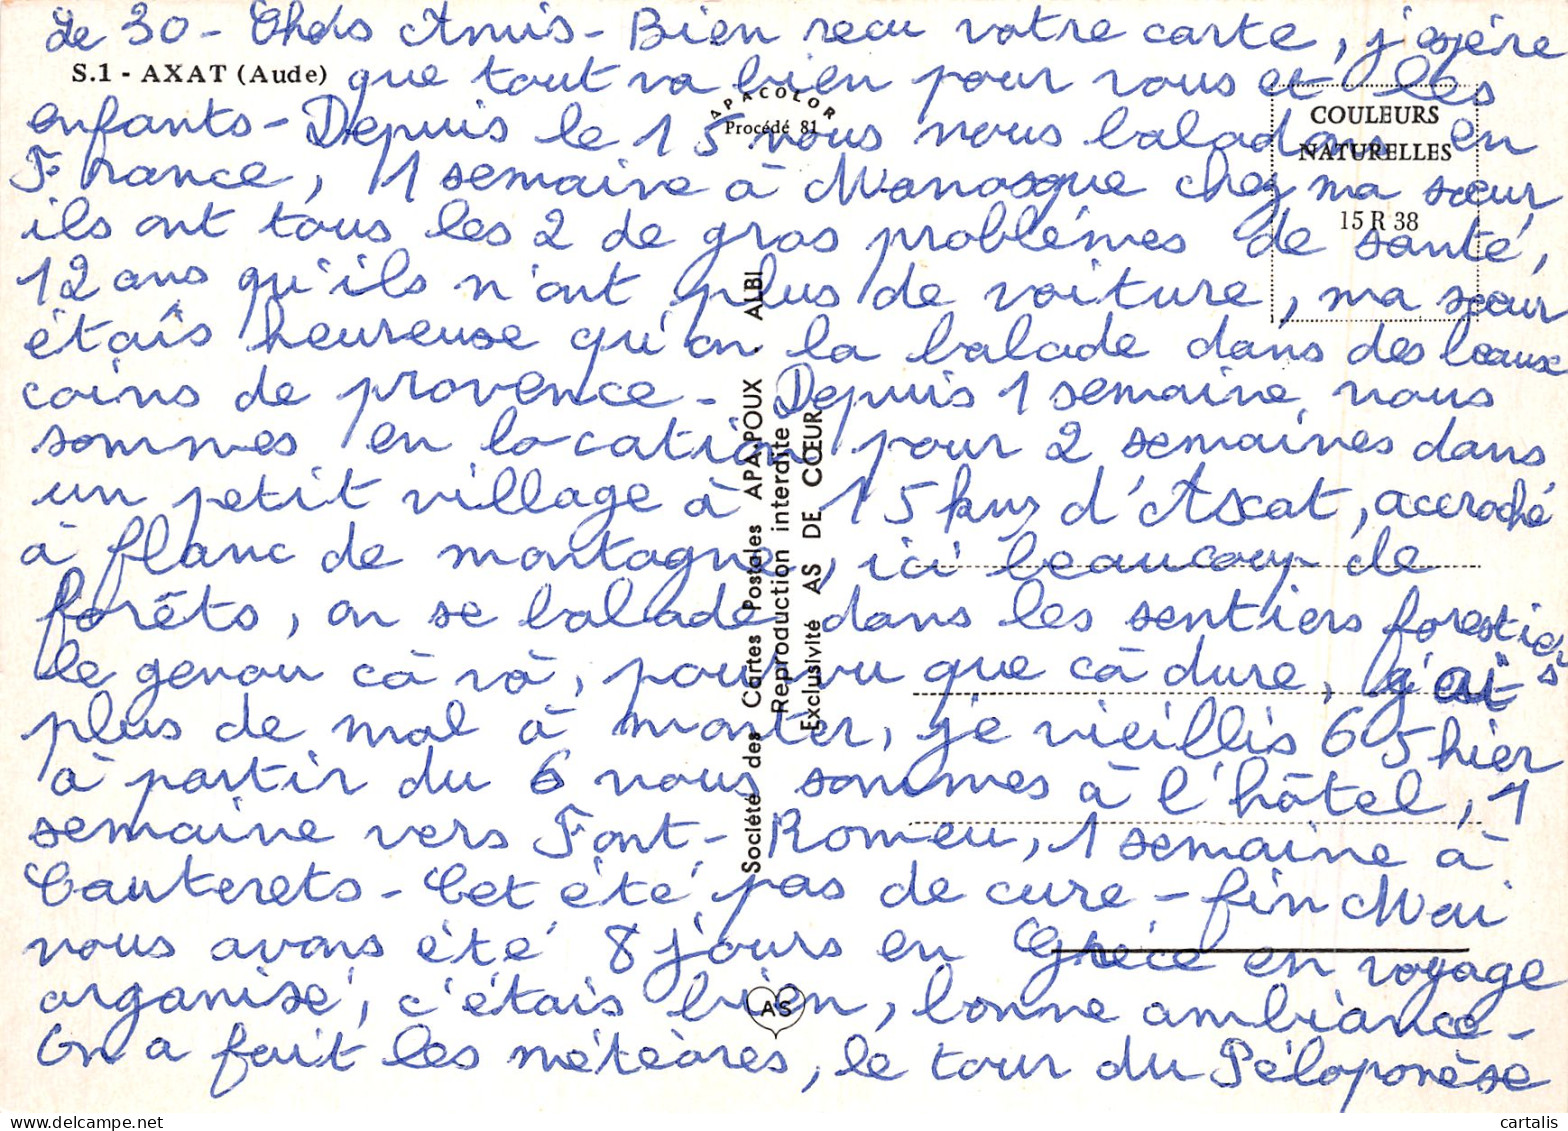 Le 30 - Chers Amis - Bien recu votre carte, j'espére
S.1 - AXAT (Aude)
que tout va bien pour vous et les
APACOLOR
Procédé 81
COULEURS
NATURELLES
15 R 38
enfants - Depuis le 15 nous nous baladons en
France, 1 semaine à Manosque chez ma sœur,
ils ont tous les 2 de gros problémes de santé,
12 ans qu'ils n'ont plus de voiture, ma sœur
étais heureuse qu'on la balade dans des beaux
coins de provence - Depuis 1 semaine nous
sommes en location pour 2 semaines dans
un petit village à 15 kms d'Axat, accroché
à flanc de montagne, ici beaucoup de
forêts, on se balade dans les sentiers forestiers
le genou cà và, pourvu que cà dure, j'ai
plus de mal à monter, je vieillis 65 hier
à partir du 6 nous sommes à l'hôtel, 1
semaine vers Font-Romeu, 1 semaine à
Cauterets - Cet été pas de cure - fin Mai
nous avons été 8 jours en Gréce en voyage
organisé, c'étais bien, bonne ambiance -
On a fait les météores, le tour du Péloponèse
Société des Cartes Postales APA-POUX ALBI
Reproduction interdite
Exclusivité AS DE CŒUR
AS
cartalis